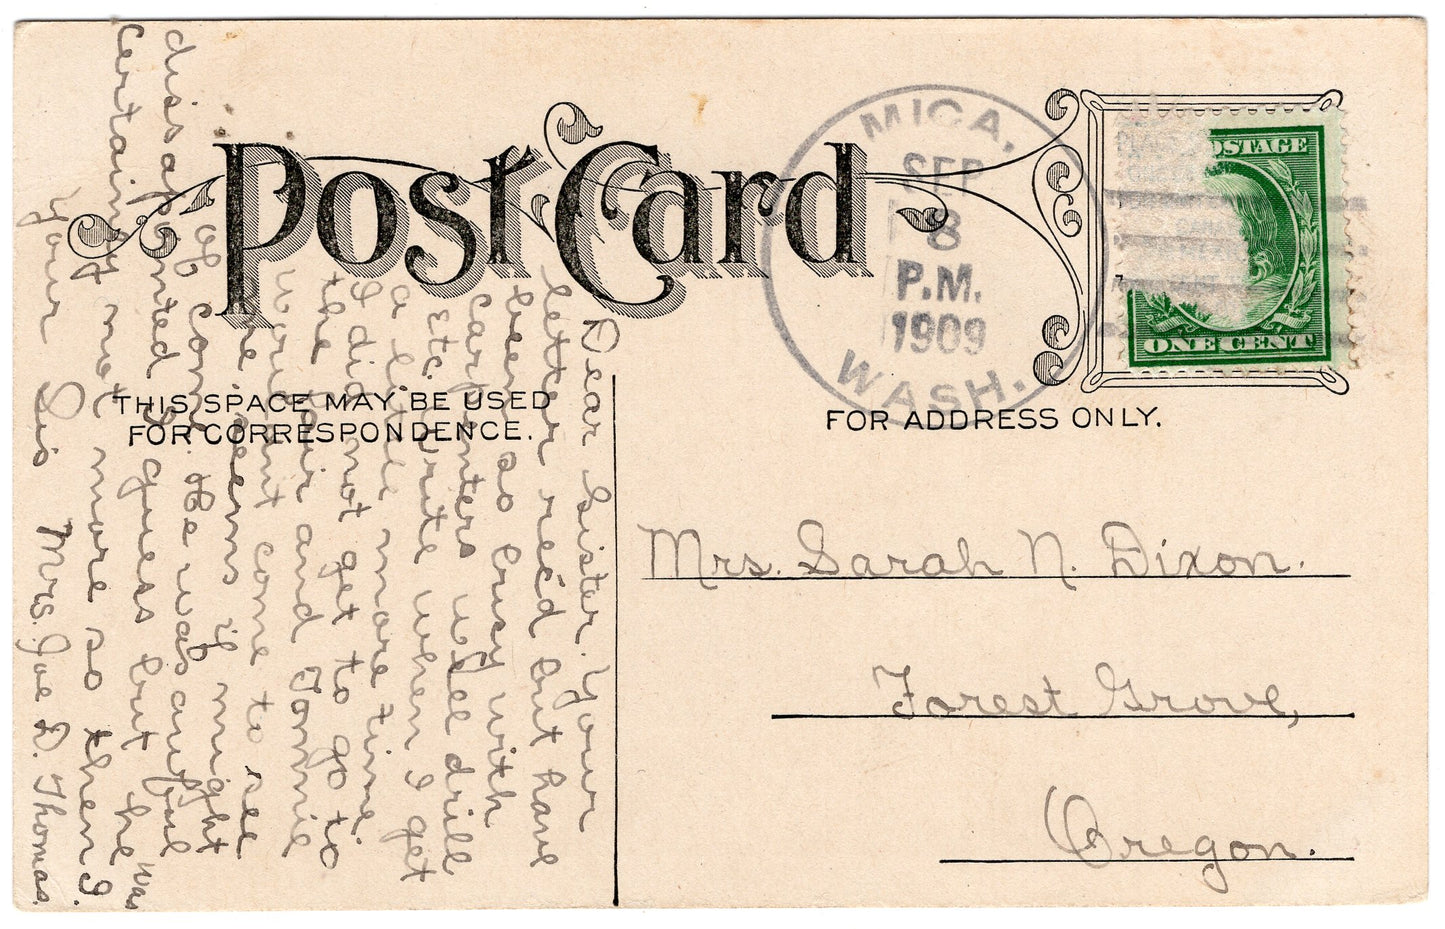 Post Card
THIS SPACE MAY BE USED
FOR CORRESPONDENCE.
FOR ADDRESS ONLY.
MICA,
SEP
8
P.M.
1909
WASH.
POSTAGE
ONE CENT
Mrs. Sarah N. Dixon.
Forest Grove,
Oregon.
Dear Sister. Your
letter rec'd but have
been so busy with
carpenters well drill
etc. Write when I get
a little more time.
I did not get to go to
the fair and Tomie
would'nt come to see
me seems if might
of come. He was awful
disapointed I guess but he was
certainly not more so then I.
your Sis Mrs. Joe D. Thomas.